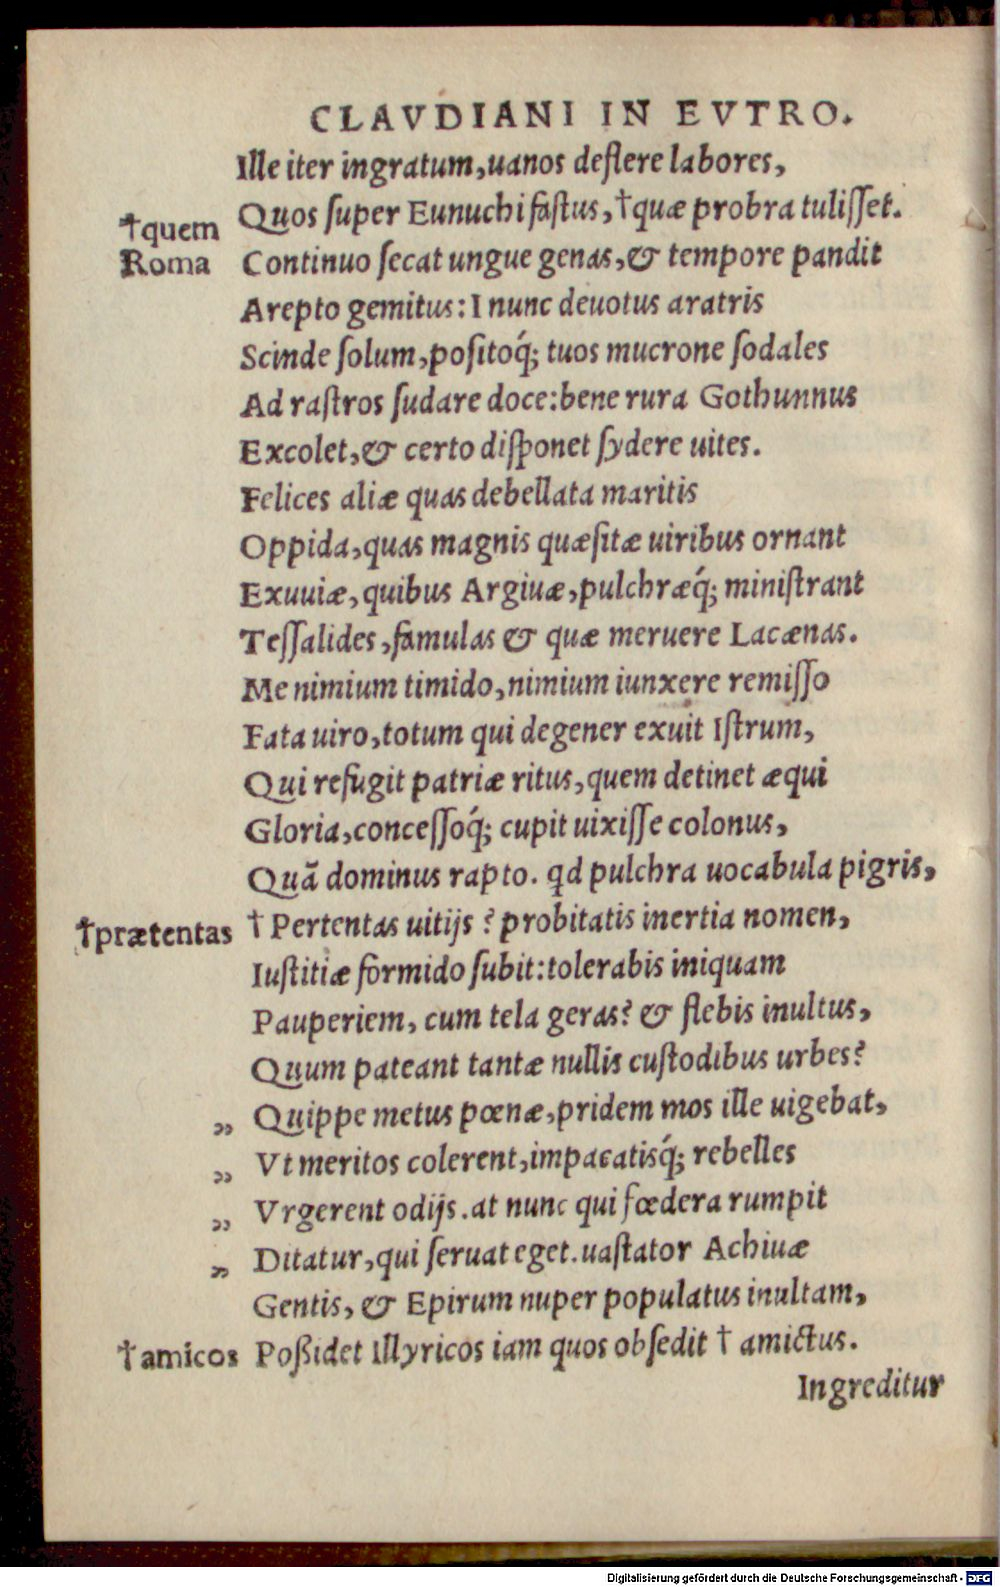 CLAVDIANI IN EVTRO.
Ille iter ingratum, uanos deflere labores,
†quem Quos super Eunuchi fastus, †quæ probra tulisset.
Roma Continuo secat ungue genas, & tempore pandit
Arepto gemitus: I nunc deuotus aratris
Scinde solum, positoq́; tuos mucrone sodales
Ad rastros sudare doce: bene rura Gothunnus
Excolet, & certo disponet sydere uites.
Felices aliæ quas debellata maritis
Oppida, quas magnis quæsitæ uiribus ornant
Exuuiæ, quibus Argiuæ, pulchræq́; ministrant
Tessalides, famulas & quæ meruere Lacænas.
Me nimium timido, nimium iunxere remisso
Fata uiro, totum qui degener exuit Istrum,
Qui refugit patriæ ritus, quem detinet æqui
Gloria, concessoq́; cupit uixisse colonus,
Quã dominus rapto. qd pulchra uocabula pigris,
†prætentas † Pertentas uitijs? probitatis inertia nomen,
Iustitiæ formido subit: tolerabis iniquam
Pauperiem, cum tela geras? & flebis inultus,
Quum pateant tantæ nullis custodibus urbes?
„ Quippe metus pœnæ, pridem mos ille uigebat,
„ Vt meritos colerent, impacatisq́; rebelles
„ Vrgerent odijs. at nunc qui fœdera rumpit
„ Ditatur, qui seruat eget. uastator Achiuæ
Gentis, & Epirum nuper populatus inultam,
†amicos Poßidet Illyricos iam quos obsedit † amictus.
Ingreditur
Digitalisierung gefördert durch die Deutsche Forschungsgemeinschaft - DFG